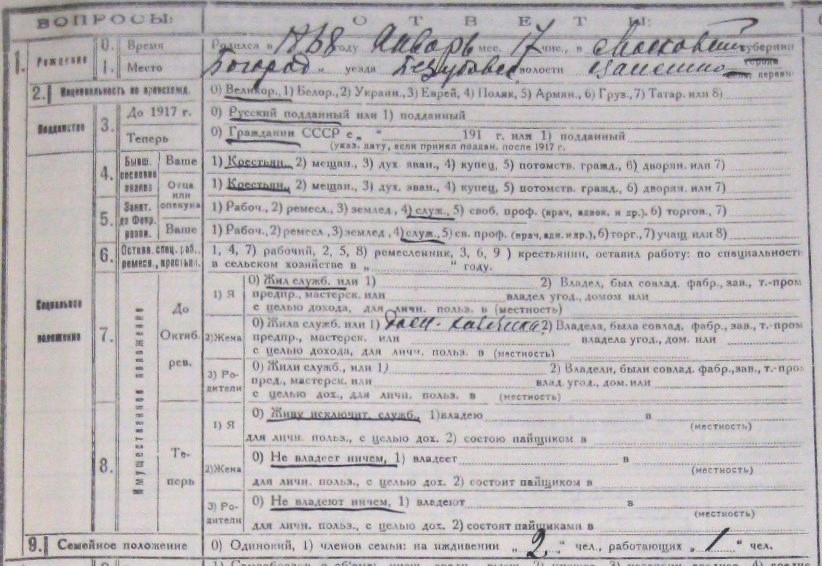 ВОПРОСЫ: ОТВЕТЫ:
1. Рождение 0. Время Родился в 1868 году Январь мес. 17 чис., в Московской губернии
1. Место Богород „ уезда волости города деревн
2. Национальность по происхожд. 0) Великор., 1) Белор., 2) Украин., 3) Еврей, 4) Поляк, 5) Армян., 6) Груз., 7) Татар. или 8)
Подданство 3. До 1917 г. 0) Русский подданный или 1) подданный
Теперь 0) Гражданин СССР с „ “ 191 г. или 1) подданный
(указ. дату, если принял поддан. после 1917 г.
Социальное положение
4. Бывш. сословное звание Ваше 1) Крестьян., 2) мещан., 3) дух. зван., 4) купец, 5) потомств. гражд., 6) дворян. или 7)
Отца или опекуна 1) Крестьян., 2) мещан., 3) дух. зван., 4) купец, 5) потомств. гражд., 6) дворян. или 7)
5. Занят. до Февр. револ. 1) Рабоч., 2) ремесл., 3) землед., 4) служ., 5) своб. проф. (врач, адвок. и др.). 6) торгов., 7)
Ваше 1) Рабоч., 2) ремесл., 3) землед., 4) служ., 5) св. проф. (врач, адв. и др.), 6) торг., 7) учащ или 8)
6. Оставл. спец. раб., ремесл., крестьян. 1, 4, 7) рабочий, 2, 5, 8) ремесленник, 3, 6, 9 ) крестьянин, оставил работу: по специальность
в сельском хозяйстве в „ “ году.
7. Имущественное положение До Октяб. рев.
1) Я 0) Жил служб. или 1) 2) Владел, был совлад. фабр., зав., т.-пром
предпр., мастерск. или владел угод., домом или
с целью дохода, для личн. польз. в (местность)
2) Жена 0) Жила служб. или 1) 2) Владела, была совлад. фабр., зав., т.-пром
предпр., мастерск. или владела угод., дом. или
с целью дохода, для личн. польз. в (местность)
3) Родители 0) Жили служб., или 1) 2) Владели, были совлад. фабр., зав., т.-пром
пред., мастерск. или влад. угод., дом. или
с целью дох., для личн. польз. в (местность)
8. Теперь
1) Я 0) Живу исключит. служб., 1) владею в
(местность)
для личн. польз., с целью дох. 2) состою пайщиком в
2) Жена 0) Не владеет ничем, 1) владеет в
(местность)
для личн. польз., с целью дох. 2) состоит пайщиком в
3) Родители 0) Не владеют ничем, 1) владеют в
(местность)
для личн. польз., с целью дох. 2) состоят пайщиками в
9. Семейное положение 0) Одинокий, 1) членов семьи: на иждивении „ 2 “ чел., работающих „ 1 “ чел.